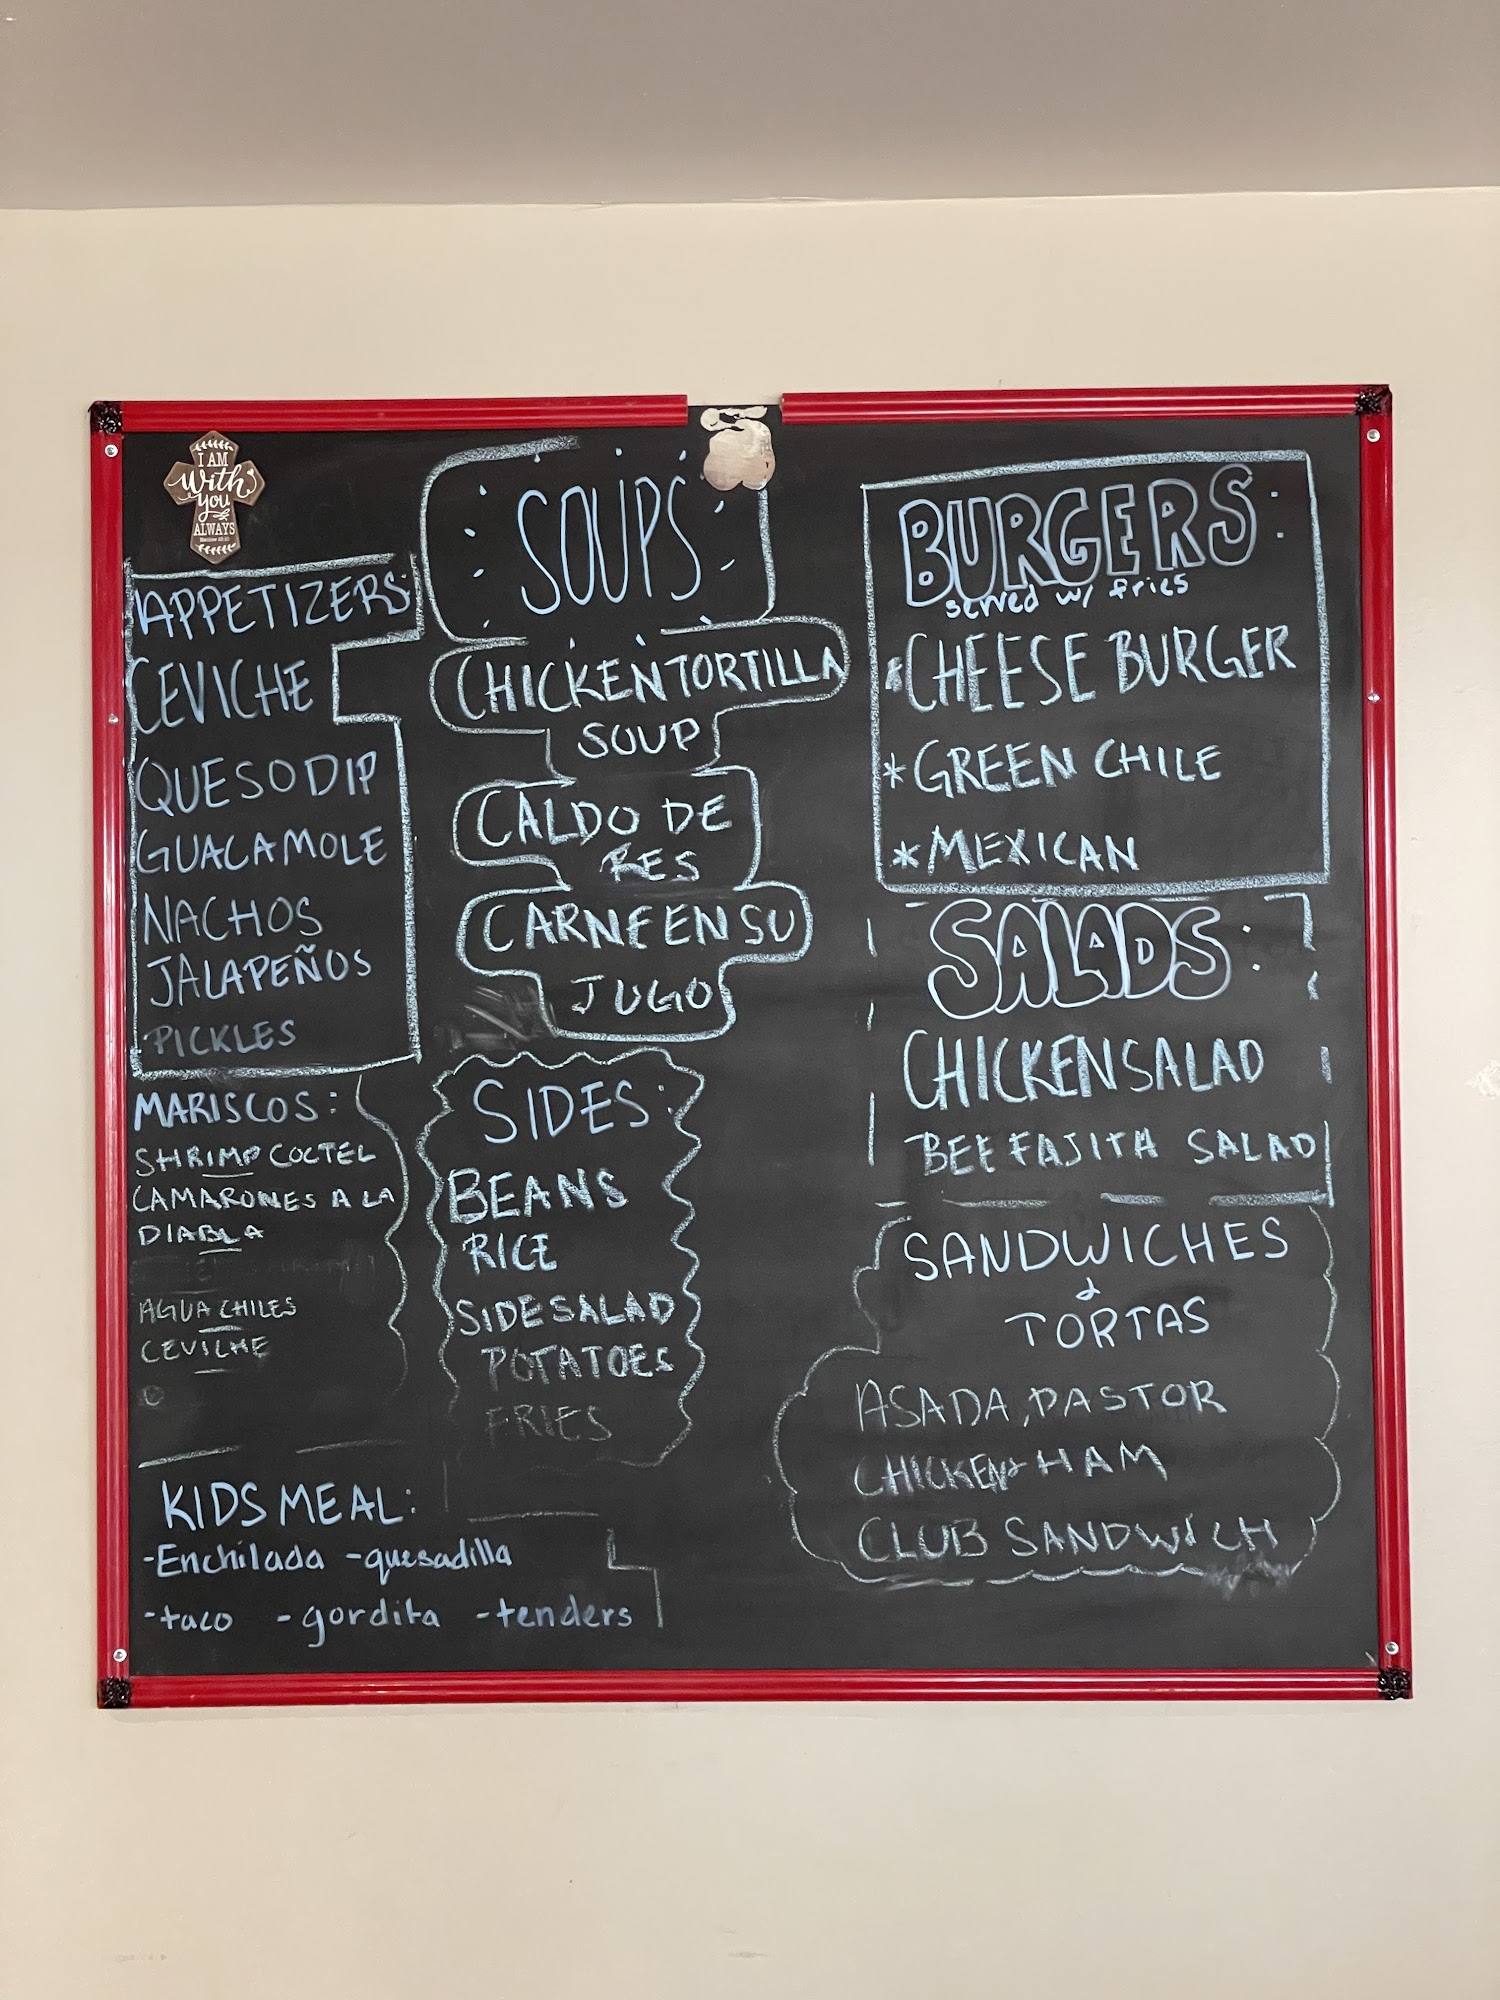 I AM
with
you
ALWAYS
APPETIZERS:
CEVICHE
QUESO DIP
GUACAMOLE
NACHOS
JALAPEÑOS
PICKLES
MARISCOS:
SHRIMP COCTEL
CAMARONES A LA
DIABLA
AGUA CHILES
CEVICHE
KIDS MEAL:
-Enchilada -quesadilla
-taco -gordita -tenders
SOUPS
CHICKEN TORTILLA
SOUP
CALDO DE
RES
CARNE EN SU
JUGO
SIDES:
BEANS
RICE
SIDE SALAD
POTATOES
FRIES
BURGERS:
served w/ fries
*CHEESE BURGER
*GREEN CHILE
*MEXICAN
SALADS:
CHICKEN SALAD
BEEF FAJITA SALAD
SANDWICHES
&
TORTAS
ASADA, PASTOR
CHICKEN & HAM
CLUB SANDWICH